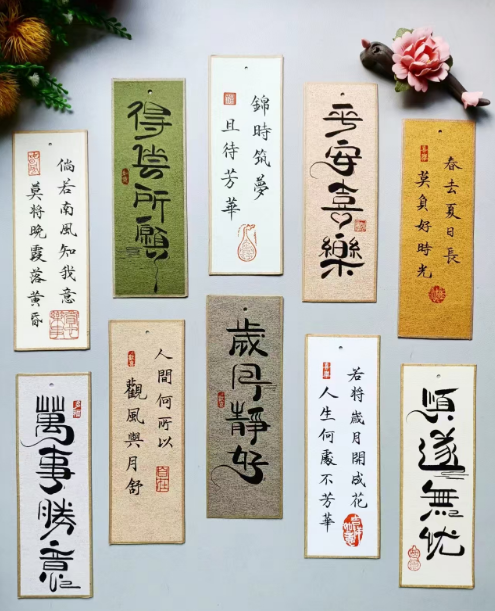 倘若南風知我意
莫將晚霞落黃昏
得償所願
錦時筑夢
且待芳華
平安喜樂
春去夏日長
莫負好時光
萬事勝意
人間何所以
觀風與月舒
歲月靜好
若將歲月開成花
人生何處不芳華
順遂無忧